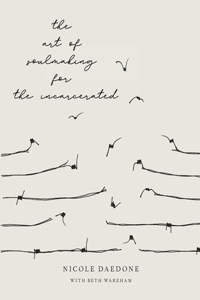 the
art of
soulmaking
for
the incarcerated
NICOLE DAEDONE
WITH BETH WAREHAM